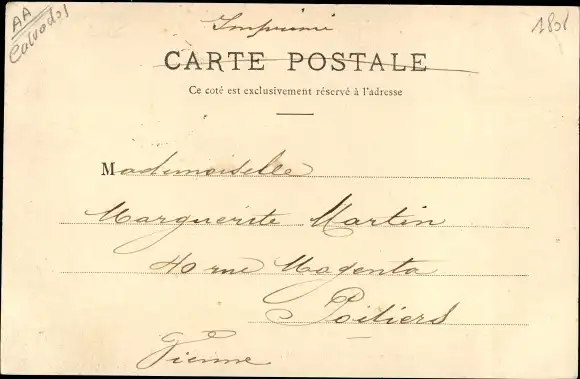 AA
Calvados
Imprimé
CARTE POSTALE
Ce coté est exclusivement réservé à l'adresse
Mademoiselle
Marguerite Martin
40 rue Magenta
Poitiers
Vienne